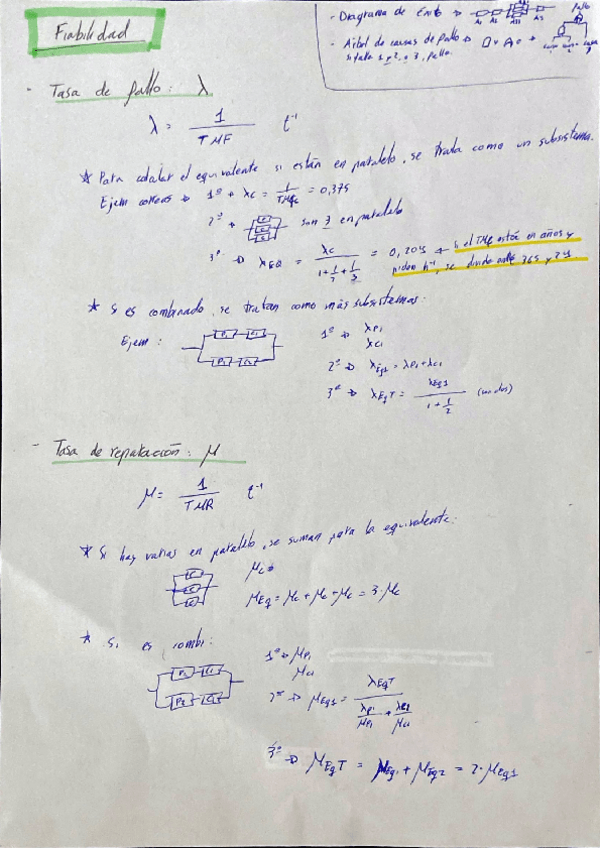 Fiabilidad
- Diagrama de Entb → A1 A2 A3
- Arbol de causas de fallo →
si falla 1, 2, o 3, fallo.
Fallo
- Tasa de fallo: λ
λ = 1 / TMF t⁻¹
* Para calcular el equivalente si están en paralelo, se trata como un subsistema.
Ejem correos → 1º → λc = 1/TMFc = 0,375
2º → son 3 en paralelo
3º → λEQ = λc / (1 + 1/2 + 1/3) = 0,204 ← si el TMF está en años y
piden h⁻¹, se divide entre 365 y 24.
* Si es combinado, se tratan como más subsistemas:
Ejem: P1 C1 P2 C2
1º → λP1
λC1
2º → λEq1 = λP1 + λC1
3º → λEqT = λEq1 / (1 + 1/2) (son dos)
- Tasa de reparación: μ
μ = 1 / TMR t⁻¹
* Si hay varias en paralelo, se suman para la equivalente:
C C C
μC
μEq = μC + μC + μC = 3·μC
* Si es combi:
P1 C1 P2 C2
1º → μP1
μC1
2º → μEq1 = λEqT / (λP1/μP1 + λC1/μC1)
3º → μEqT = μEq1 + μEq2 = 2·μEq1